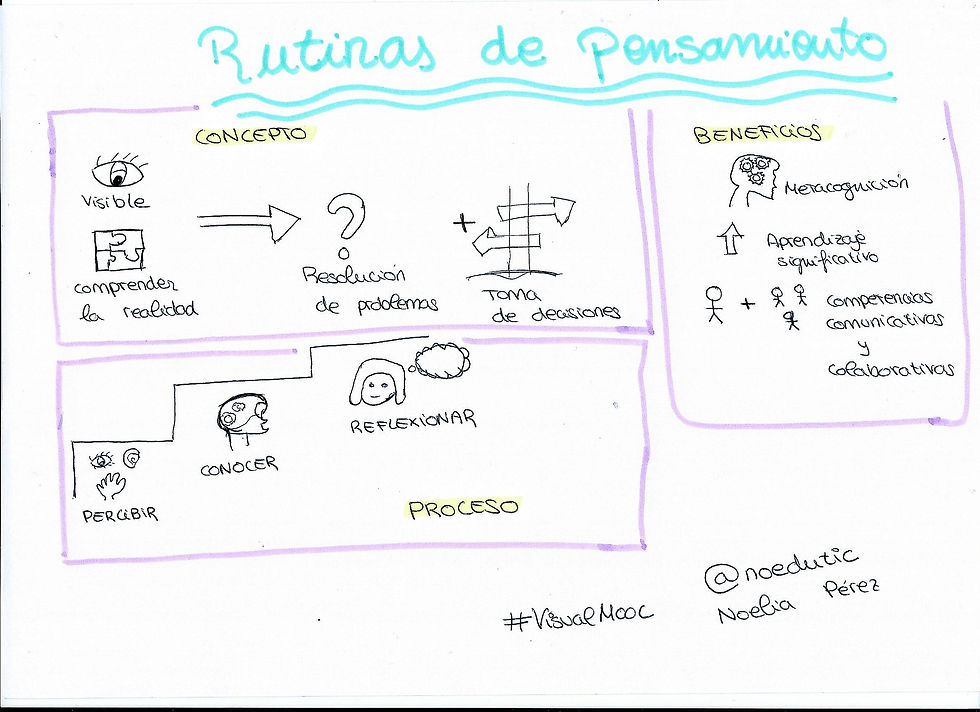 Rutinas de Pensamiento
CONCEPTO
Visible
comprender
la realidad
Resolución
de problemas
+
Toma
de decisiones
BENEFICIOS
Metacognición
Aprendizaje
significativo
+
Competencias
comunicativas
y
colaborativas
PERCIBIR
CONOCER
REFLEXIONAR
PROCESO
#VisualMooc
@noedutic
Noelia Pérez